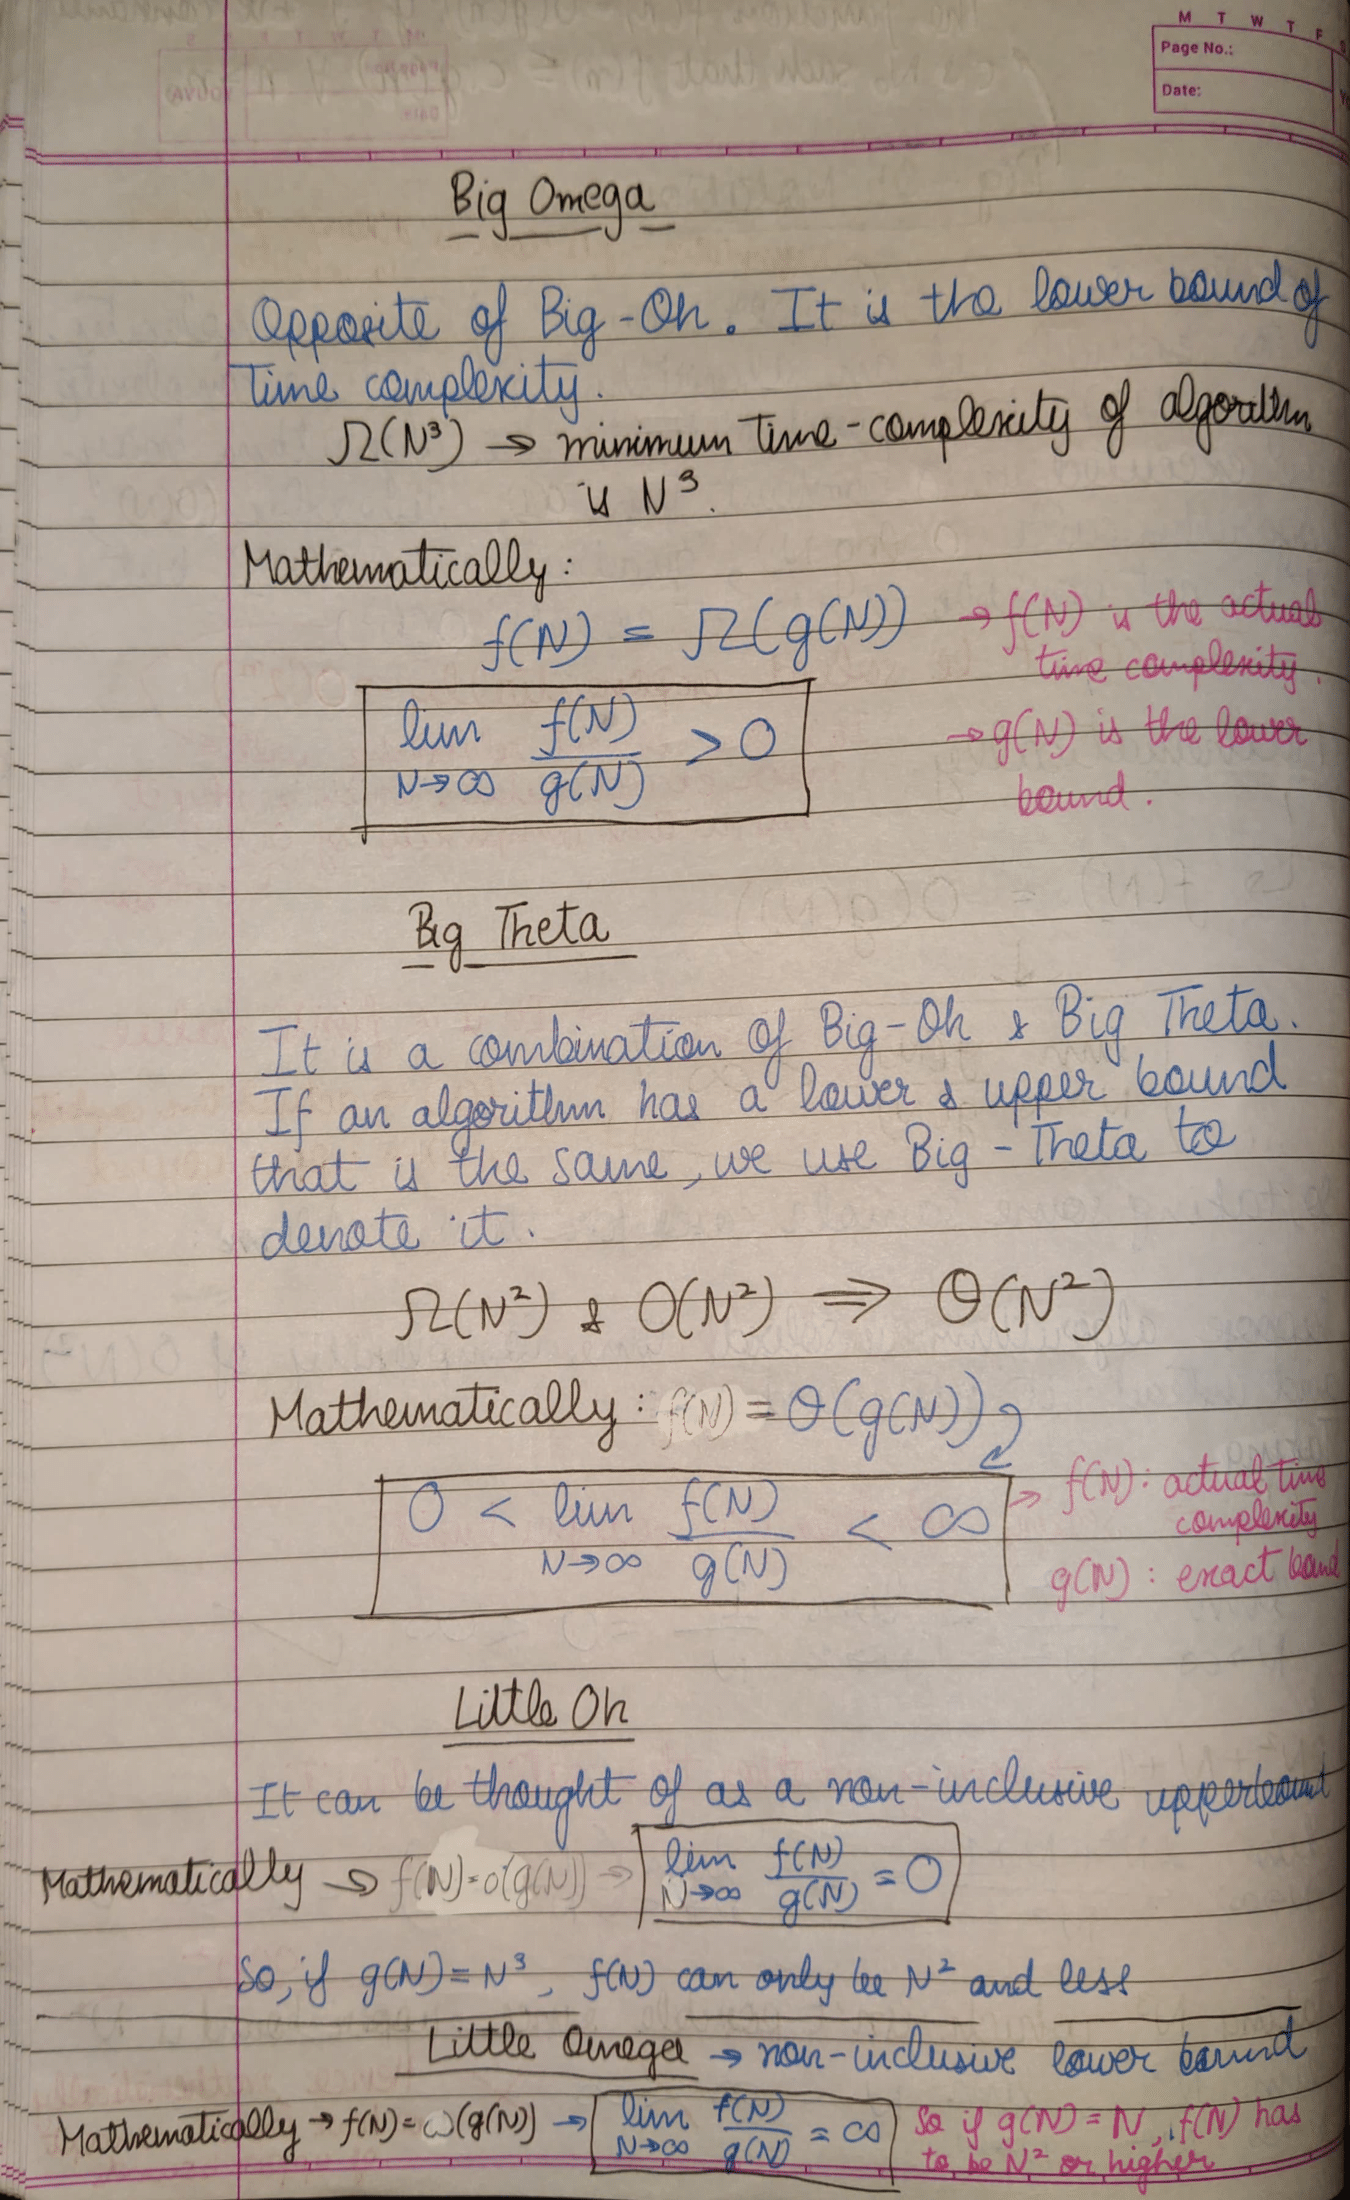 M T W T F
Page No.:
Date:
Big Omega
Opposite of Big-Oh. It is the lower bound of
time complexity.
Ω(N³) → minimum time-complexity of algorithm
is N³.
Mathematically:
f(N) = Ω(g(N)) → f(N) is the actual
time complexity.
lim N→∞ f(N)/g(N) > 0
→ g(N) is the lower
bound.
Big Theta
It is a combination of Big-Oh & Big Theta.
If an algorithm has a lower & upper bound
that is the same, we use Big-Theta to
denote it.
Ω(N²) & O(N²) ⇒ Θ(N²)
Mathematically: f(N) = Θ(g(N))
0 < lim N→∞ f(N)/g(N) < ∞
→ f(N): actual time
complexity
g(N): exact bound
Little Oh
It can be thought of as a non-inclusive upperbound
Mathematically → f(N)=o(g(N)) → lim N→∞ f(N)/g(N) = 0
So, if g(N)=N³, f(N) can only be N² and less
Little Omega → non-inclusive lower bound
Mathematically → f(N)=ω(g(N)) → lim N→∞ f(N)/g(N) = ∞
So if g(N)=N, f(N) has
to be N² or higher